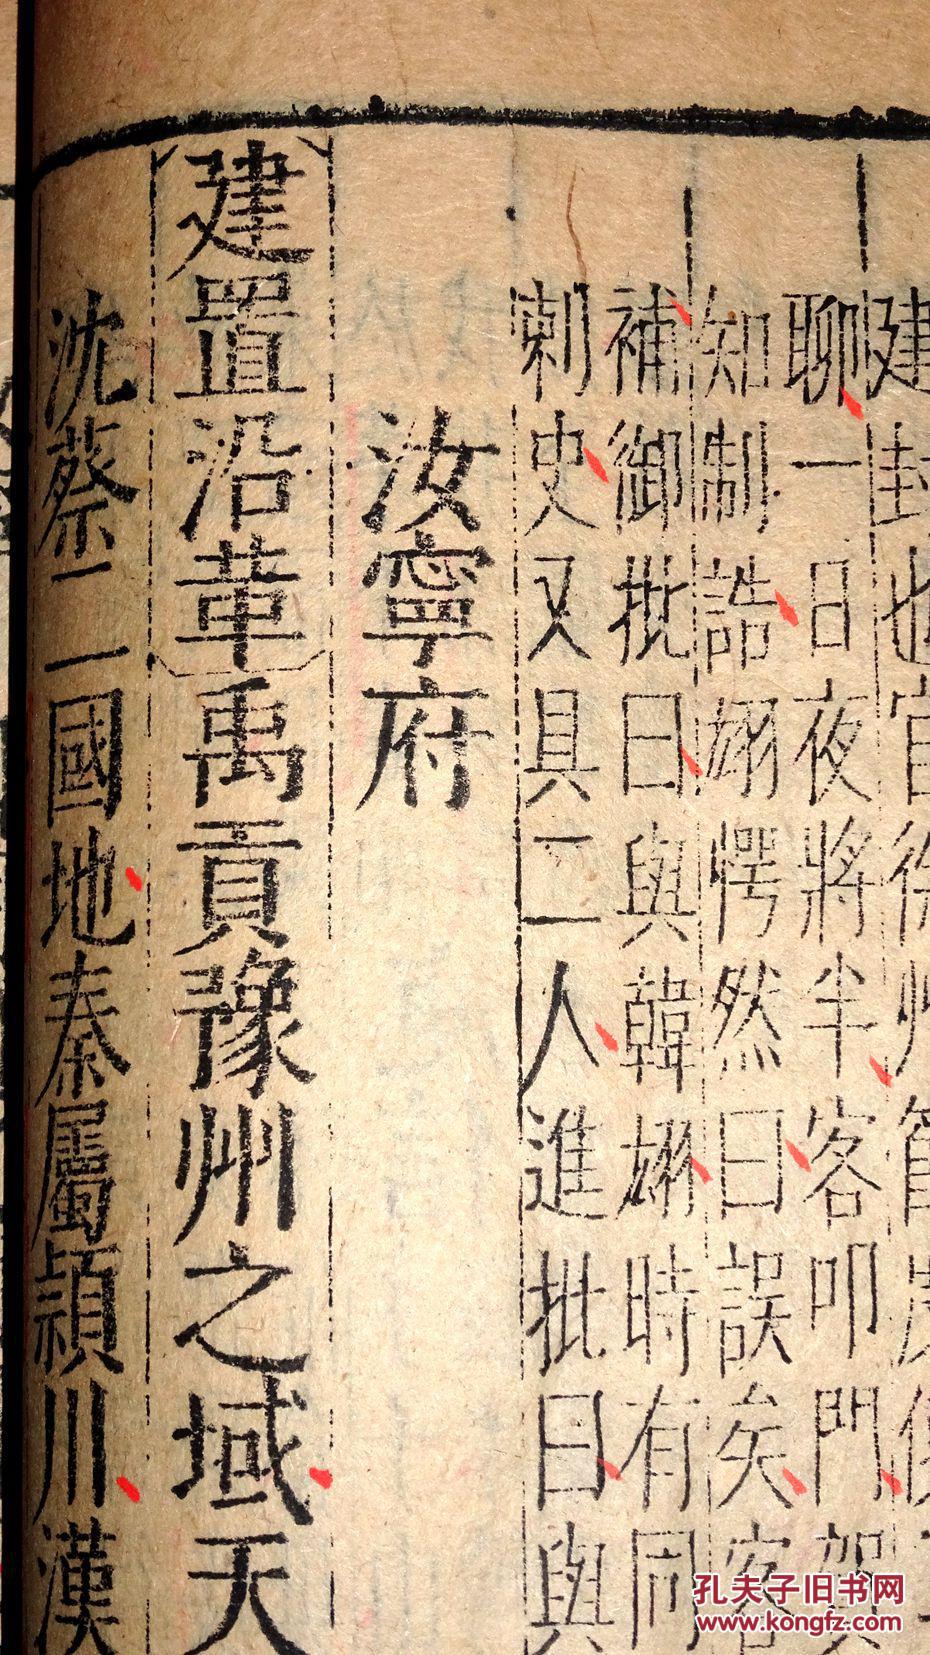 建封也官徐州管
聊一日夜將半客叩門賀
知制誥翃愕然曰誤矣客
補御批曰與韓翃時有同
刺史又具二人進批曰與
汝寧府
建置沿革禹貢豫州之域天
沈蔡二國地秦屬潁川漢
孔夫子旧书网
www.kongfz.com